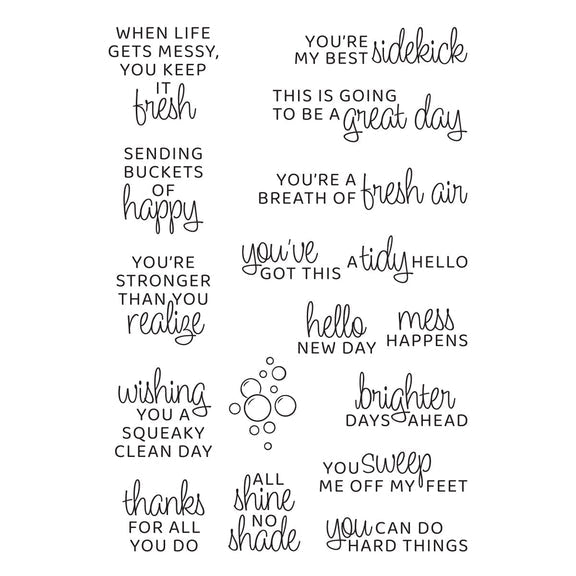 WHEN LIFE
GETS MESSY,
YOU KEEP
IT
fresh
SENDING
BUCKETS
OF
happy
YOU'RE
STRONGER
THAN YOU
realize
wishing
YOU A
SQUEAKY
CLEAN DAY
thanks
FOR ALL
YOU DO
YOU'RE
MY BEST sidekick
THIS IS GOING
TO BE A great day
YOU'RE A
BREATH OF fresh air
you've
GOT THIS
A tidy HELLO
hello
NEW DAY
mess
HAPPENS
brighter
DAYS AHEAD
YOU sweep
ME OFF MY FEET
ALL
shine
NO
shade
you CAN DO
HARD THINGS